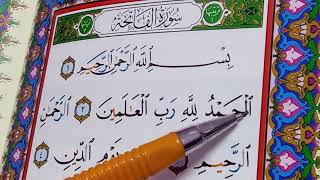 سُورَةُ الْفَاتِحَةِ
بِسْمِ اللَّهِ الرَّحْمَٰنِ الرَّحِيمِ ١
الْحَمْدُ لِلَّهِ رَبِّ الْعَالَمِينَ ٢ الرَّحْمَٰنِ
الرَّحِيمِ ٣ يَوْمِ الدِّينِ ٤